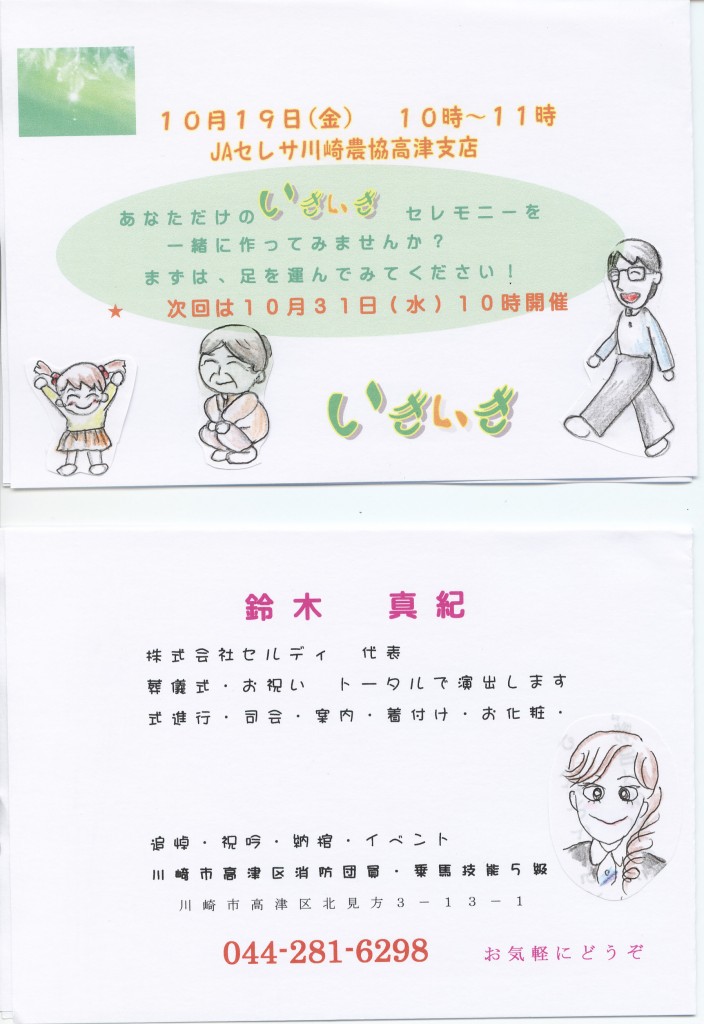 10月19日(金) 10時～11時
JAセレサ川崎農協高津支店
あなただけの いきいき セレモニーを
一緒に作ってみませんか？
まずは、足を運んでみてください！
★ 次回は10月31日（水）10時開催
いきいき
鈴木 真紀
株式会社セルディ 代表
葬儀式・お祝い トータルで演出します
式進行・司会・案内・着付け・お化粧・
追悼・祝吟・納棺・イベント
川崎市高津区消防団員・乗馬技能5級
川崎市高津区北見方3－13－1
044-281-6298 お気軽にどうぞ